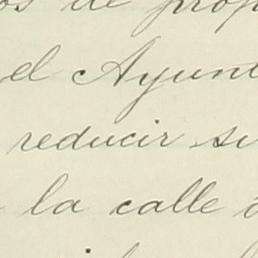 os de prop
el Ayunt
reducir su
la calle d